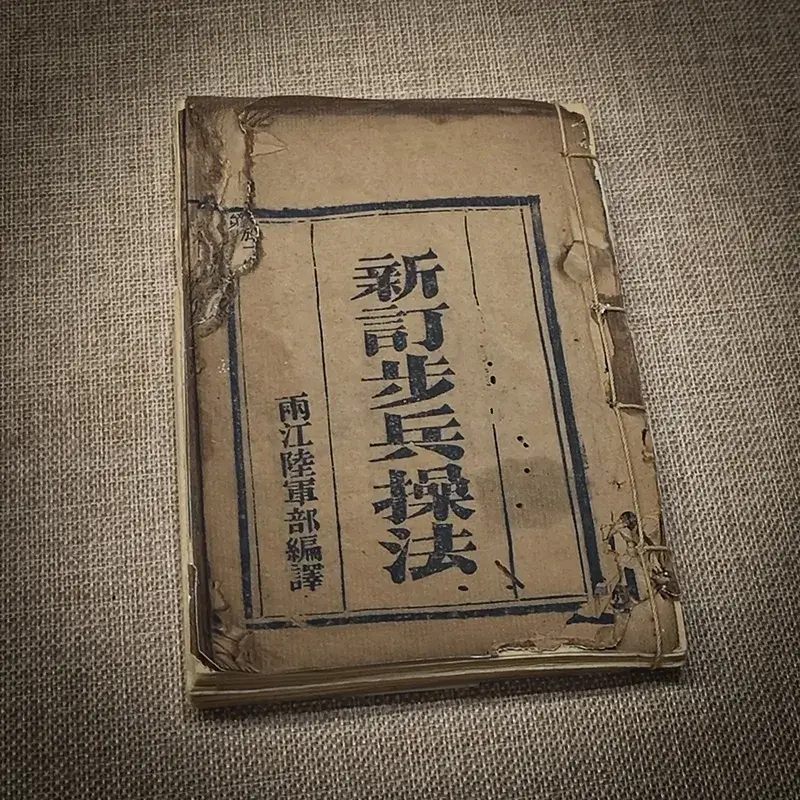 新訂步兵操法
兩江陸軍部編譯